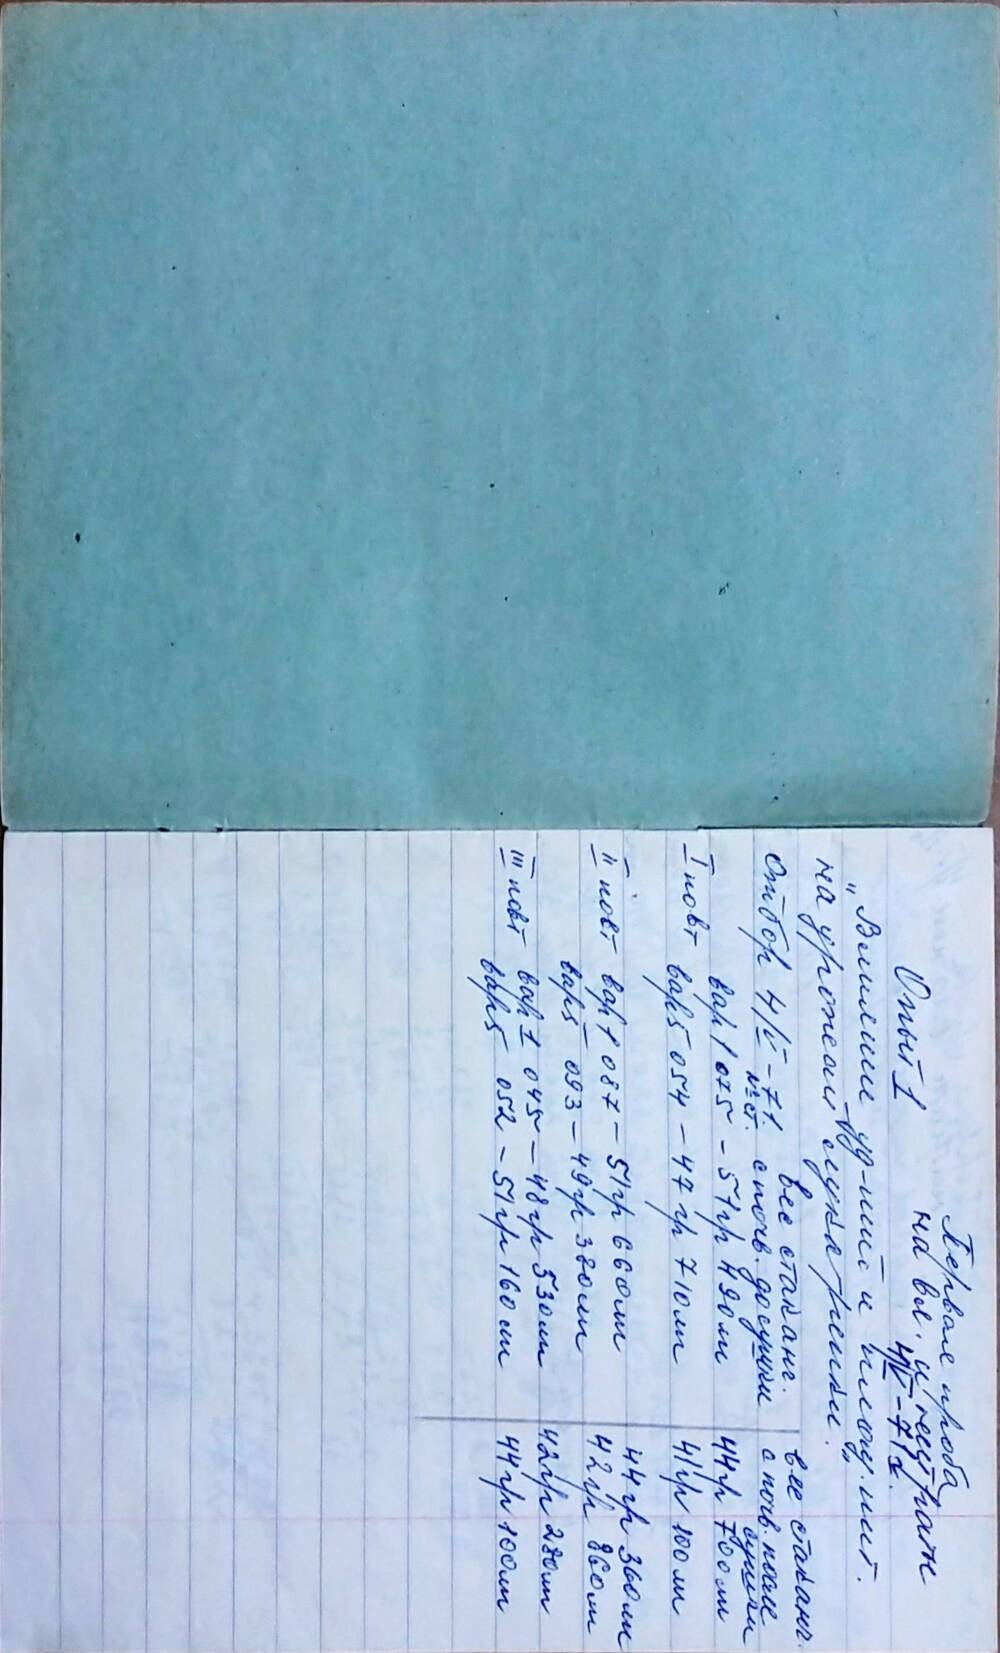 Первая проба
на вл. и нитраты
4/V-71г.
Опыт 1
„Влияние уд-ний и площ. пит.
на урожай лука репки."
Отбор 4/V-71.
№ ст.
вес стаканч.
с почв. до сушки
вес стаканч.
с почв. после
сушки
I повт вар 1 075 - 51 гр 490 мм 44 гр 700 мм
вар 5 054 - 47 гр 710 мм 41 гр 100 мм
II повт вар 1 087 - 51 гр 660 мм 44 гр 360 мм
вар 5 093 - 49 гр 380 мм 42 гр 860 мм
III повт вар 1 045 - 48 гр 530 мм 42 гр 280 мм
вар 5 052 - 51 гр 160 мм 44 гр 100 мм